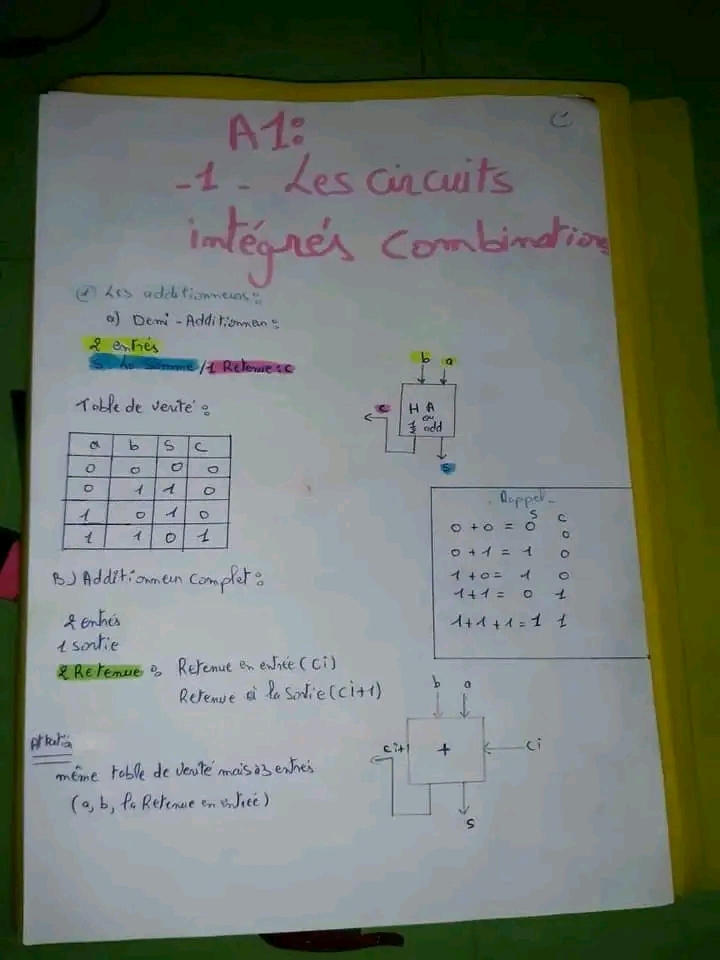 A1:
-1- Les circuits
intégrés Combination
Les additionneurs:
a) Demi-Additionneur:
2 entrés
S: la somme / 1 Retenue: C
Table de verité:
a b S C
0 0 0 0
0 1 1 0
1 0 1 0
1 1 0 1
b a
c
H A
ou
1/2 add
S
Rappel
S C
0 + 0 = 0 0
0 + 1 = 1 0
1 + 0 = 1 0
1 + 1 = 0 1
1 + 1 + 1 = 1 1
B) Additionneur Complet:
2 entrés
1 sortie
2 Retenue: Retenue en entrée (Ci)
Retenue à la sortie (Ci+1)
même table de verité mais à 3 entrés
(a, b, la Retenue en entrée)
b a
ci+1 + Ci
S